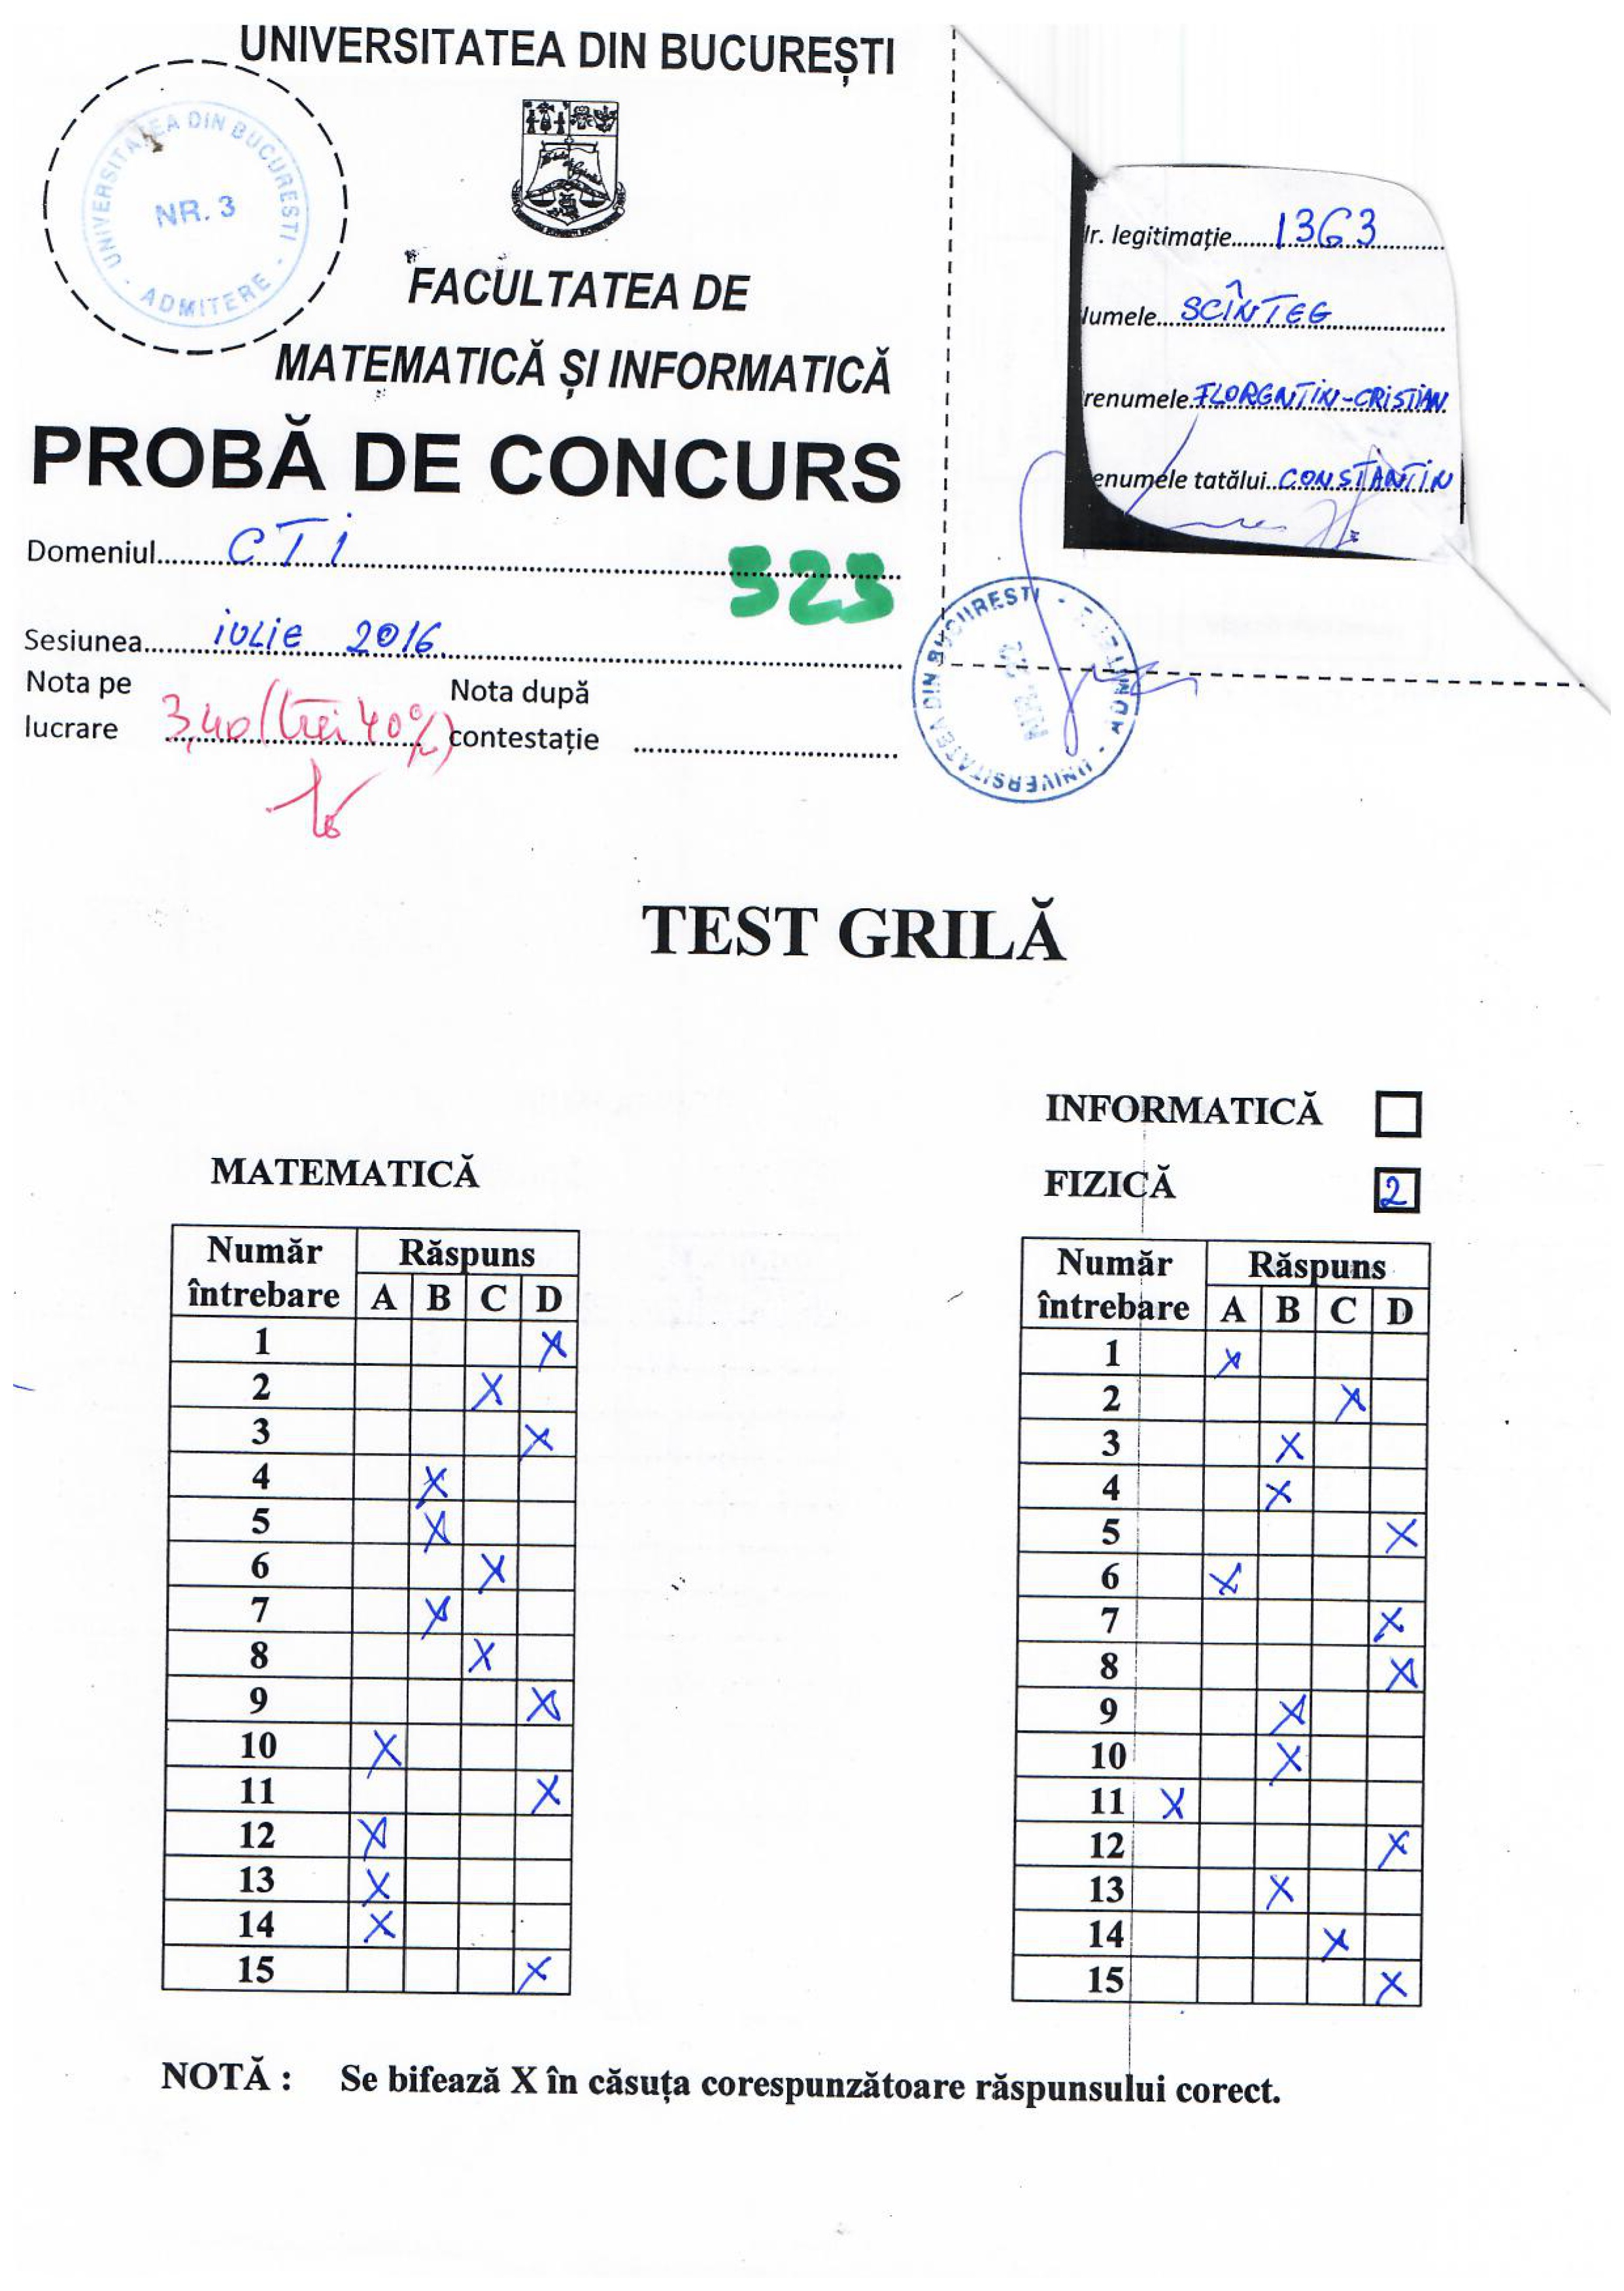 UNIVERSITATEA DIN BUCUREȘTI
UNIVERSITATEA DIN BUCURESTI - ADMITERE -
NR. 3
FACULTATEA DE
MATEMATICĂ ȘI INFORMATICĂ
PROBĂ DE CONCURS
Domeniul CTI
323
Sesiunea iulie 2016
Nota pe lucrare 3,40 (trei 40%)
Nota după contestație
lr. legitimație 1363
lumele SCÎNTEG
renumele FLORENTIN-CRISTIAN
enumele tatălui CONSTANTIN
UNIVERSITATEA DIN BUCURESTI - ADMITERE -
TEST GRILĂ
INFORMATICĂ
FIZICĂ 2
MATEMATICĂ
Număr întrebare Răspuns
A B C D
1 X
2 X
3 X
4 X
5 X
6 X
7 X
8 X
9 X
10 X
11 X
12 X
13 X
14 X
15 X
Număr întrebare Răspuns
A B C D
1 X
2 X
3 X
4 X
5 X
6 X
7 X
8 X
9 X
10 X
11 X
12 X
13 X
14 X
15 X
NOTĂ : Se bifează X în căsuța corespunzătoare răspunsului corect.